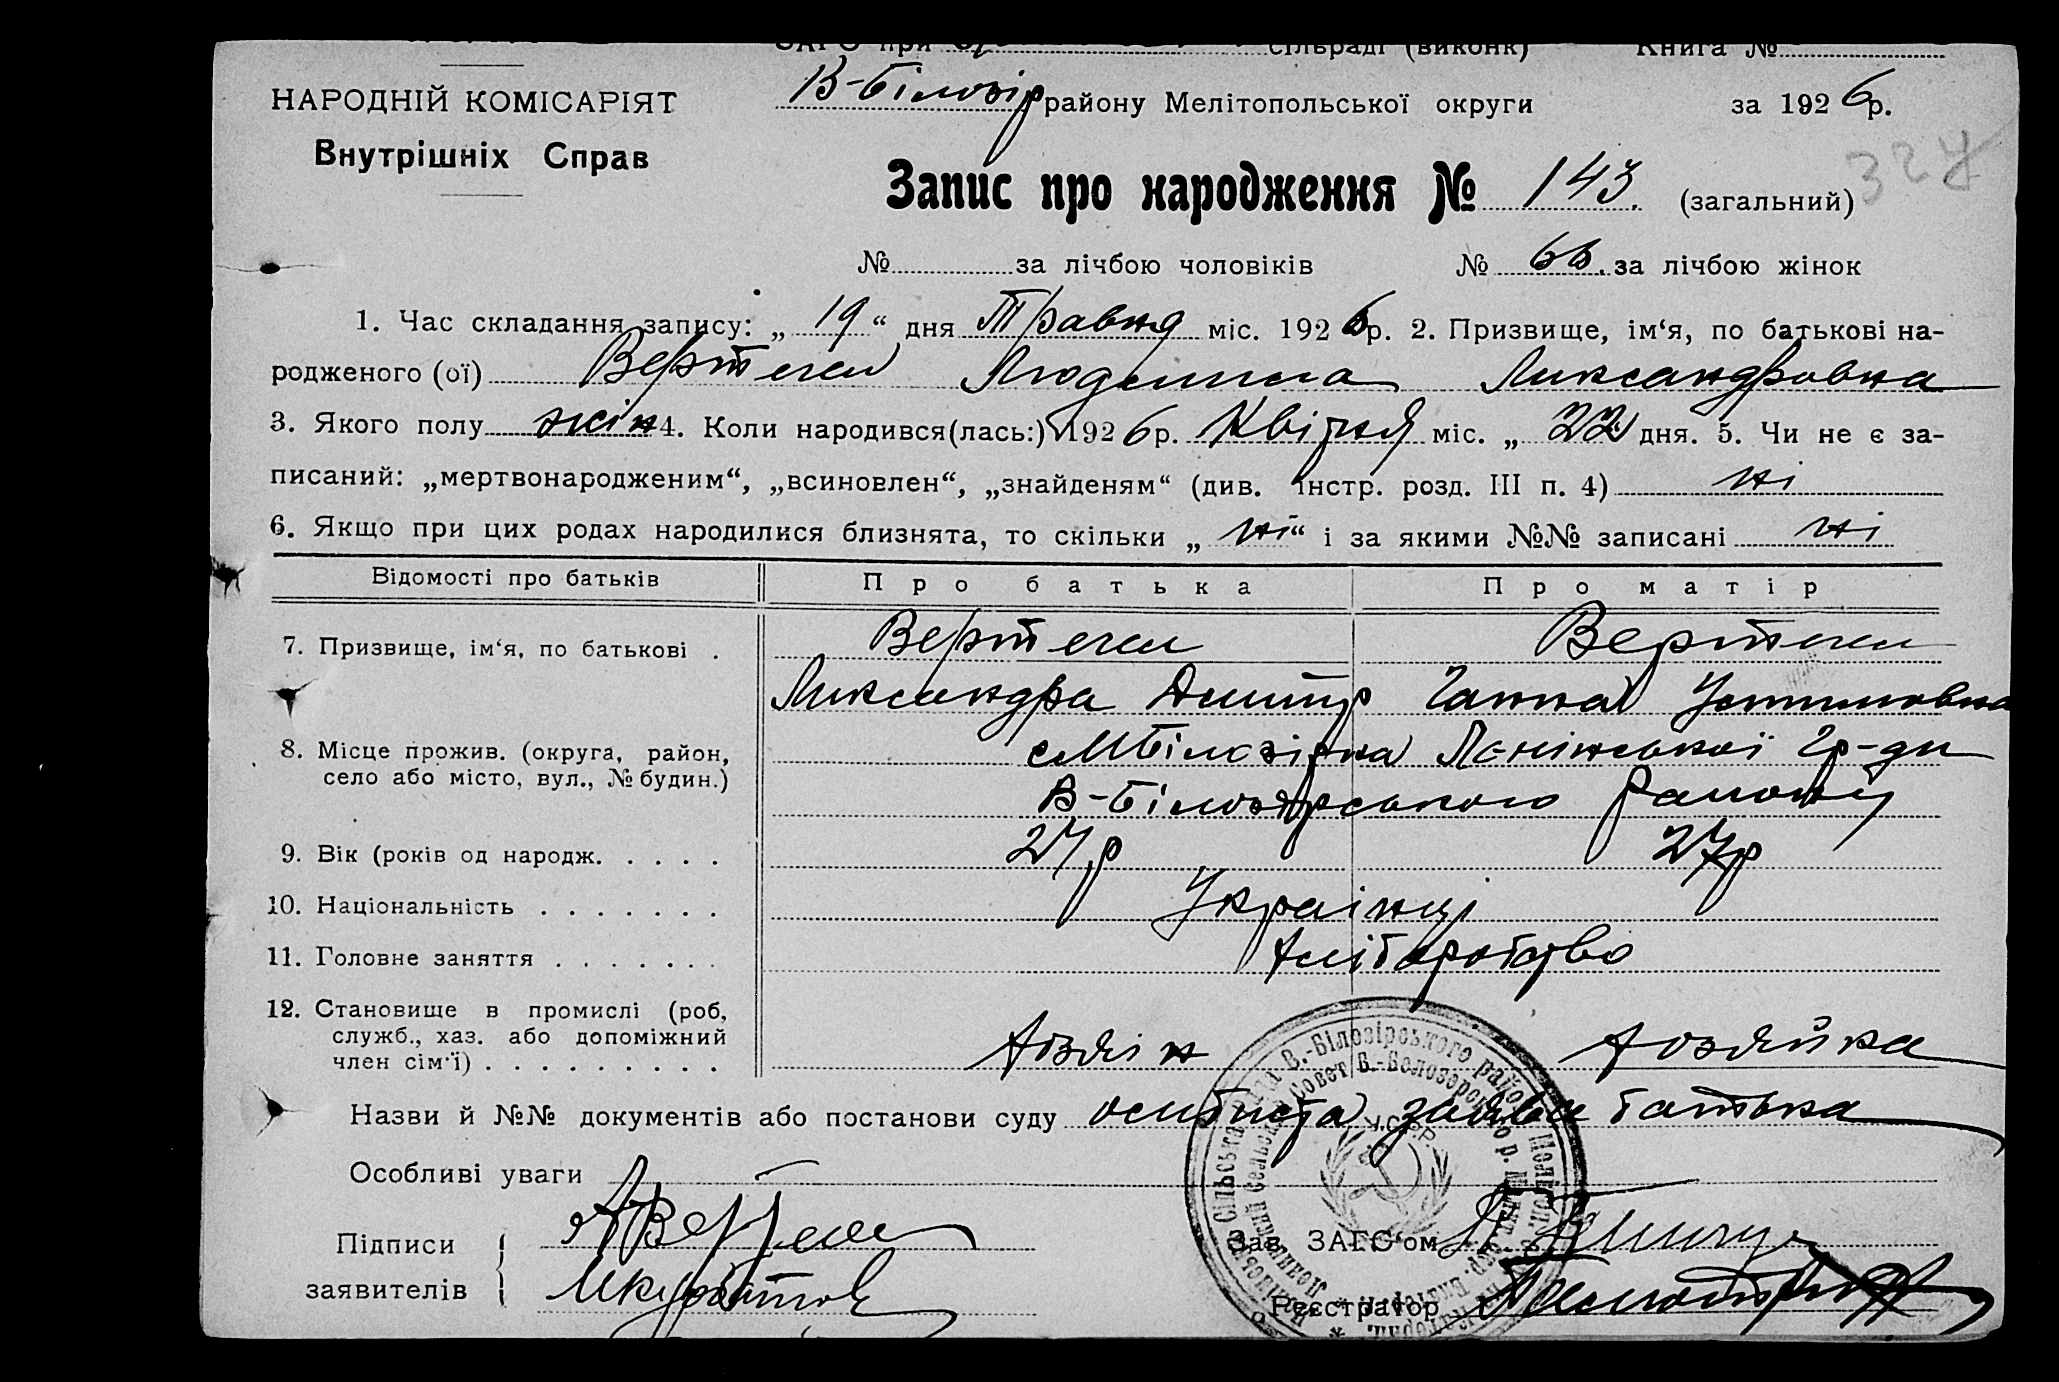 ЗАГС при сільраді (виконк) Книга №
НАРОДНІЙ КОМІСАРІЯТ
Внутрішніх Справ
В-Білозір району Мелітопольської округи за 1926 р.
Запис про народження № 143. (загальний)
327
№ за лічбою чоловіків № за лічбою жінок
1. Час складання запису: „19“ дня Травня міс. 1926 р. 2. Призвище, ім‘я, по батькові на-
родженого (ої) Людмила Лиександровна
3. Якого полу жін 4. Коли народився(лась:) 1926 р. Квітня міс. „22 дня. 5. Чи не є за-
писаний: „мертвонародженим“, „всиновлен“, „знайденям“ (див. інстр. розд. III п. 4) ні
6. Якщо при цих родах народилися близнята, то скільки „ні“ і за якими №№ записані ні
Відомості про батьків Про батька Про матір
7. Призвище, ім‘я, по батькові .
Ганна Устиновна
8. Місце прожив. (округа, район,
село або місто, вул., № будин.)
Ленінської гр-ди
В-Білозірського Району
9. Вік (років од народж. . . . . 27 р 27 р
10. Національність . . . . . . . Українці
11. Головне заняття . . . . . . . Хліборобство
12. Становище в промислі (роб,
служб., хаз. або допоміжний
член сім‘ї) . . . . . . . . . Хозяїн Хозяйка
Назви й №№ документів або постанови суду особиста заява батька
Особливі уваги
Підписи
заявителів
Зав. ЗАГС‘ом
Реєстратор
У.С.Р.Р.